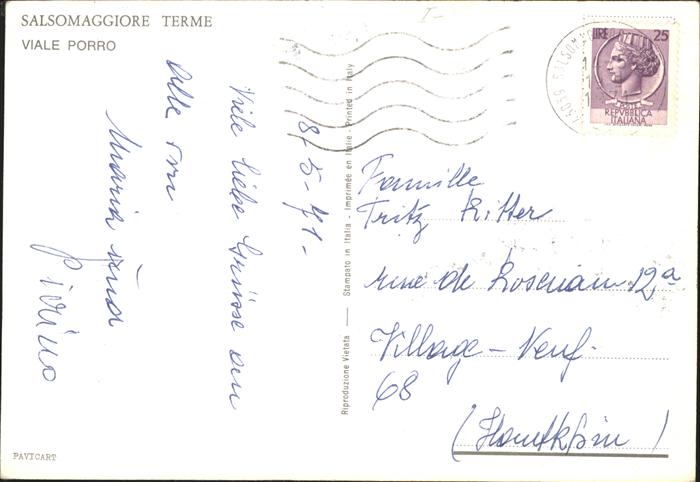 SALSOMAGGIORE TERME
VIALE PORRO
8-5-71-
Viele liebe Grüsse an
Alle von
Maria und
Pierino
Riproduzione Vietata — Stampato in Italia - Imprimée en Italie - Printed in Italy
43039 SALSOMAGGIORE
LIRE 25
POSTE
REPVBBLICA
ITALIANA
Famille
Fritz Ritter
rue de Rosenau 12a
Village-Neuf.
68
(Hautrhin)
PAVICART